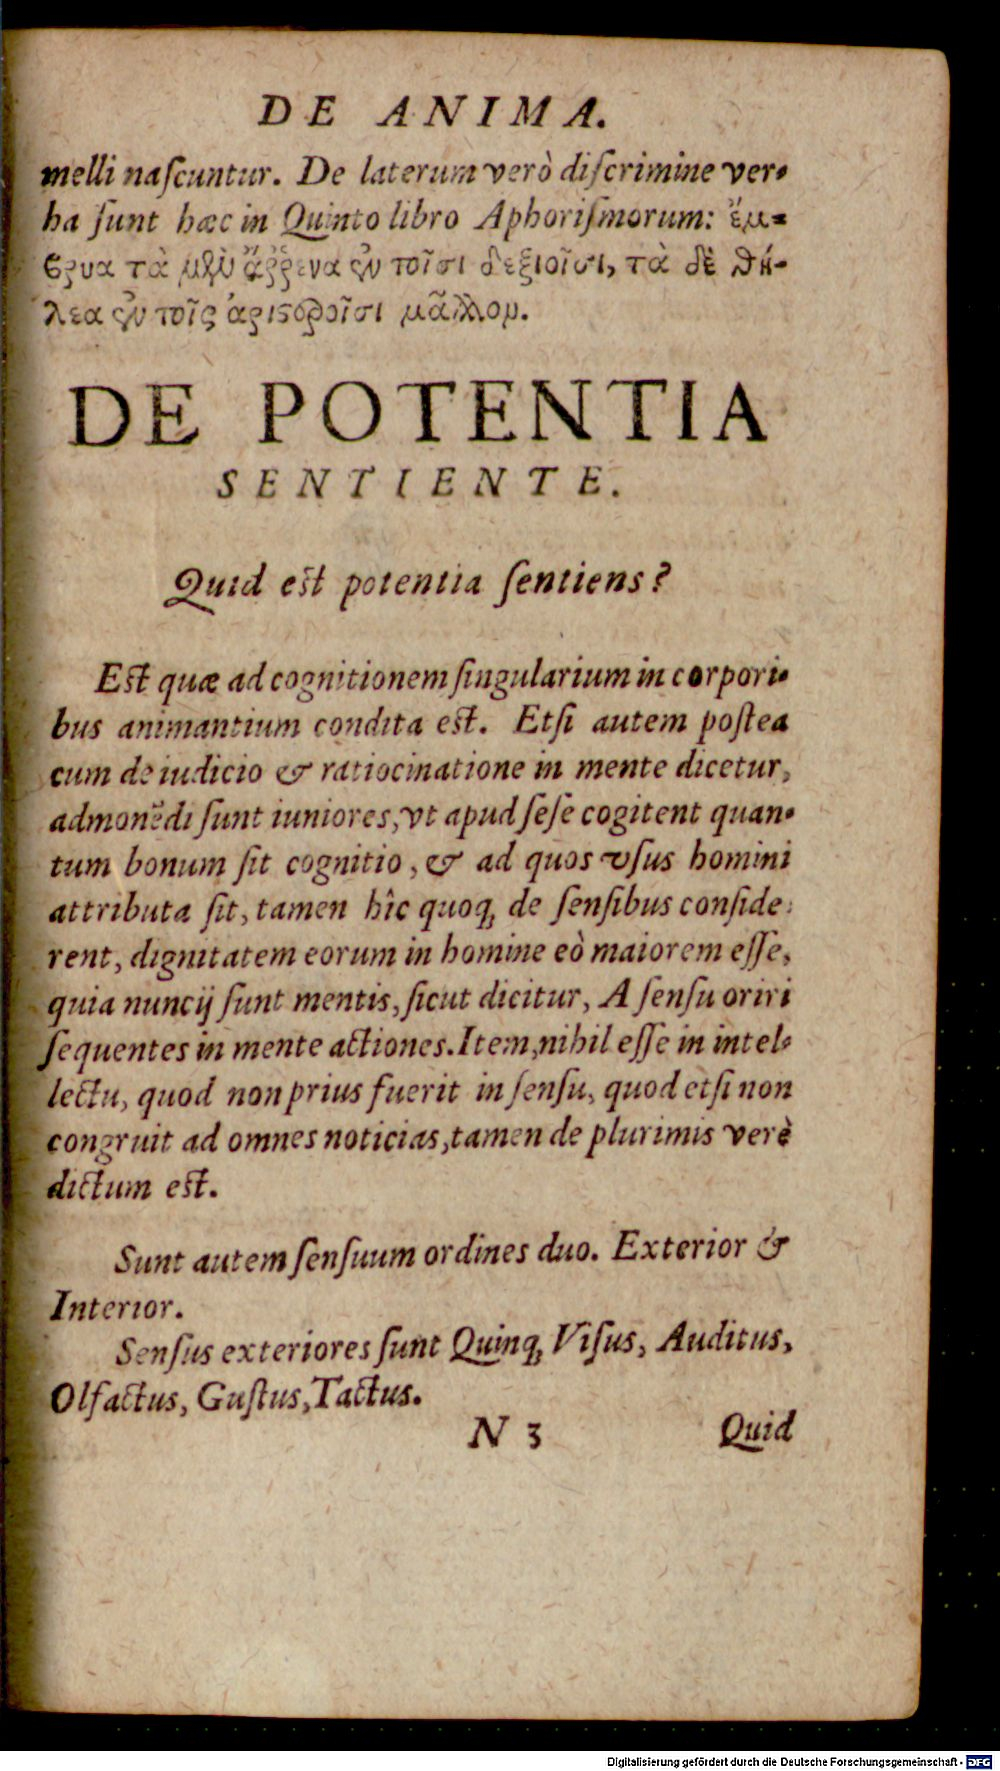 DE ANIMA.
melli naſcuntur. De laterum verò diſcrimine ver-
ba ſunt hæc in Quinto libro Aphoriſmorum: ἔμ-
βρυα τὰ μὲν ἄῤῥενα ἐν τοῖσι δεξιοῖσι, τὰ δὲ θή-
λεα ἐν τοῖς ἀριστεροῖσι μᾶλλον.
DE POTENTIA
SENTIENTE.
Quid est potentia ſentiens?
Est quæ ad cognitionem ſingularium in corpori-
bus animantium condita est. Etſi autem poſtea
cum de iudicio & ratiocinatione in mente dicetur,
admonẽdi ſunt iuniores, vt apud ſeſe cogitent quan-
tum bonum ſit cognitio, & ad quos vſus homini
attributa ſit, tamen hîc quoq; de ſenſibus conſide-
rent, dignitatem eorum in homine eò maiorem eſſe,
quia nuncij ſunt mentis, ſicut dicitur, A ſenſu oriri
ſequentes in mente actiones. Item, nihil eſſe in intel-
lectu, quod non prius fuerit in ſenſu, quod etſi non
congruit ad omnes noticias, tamen de plurimis verè
dictum est.
Sunt autem ſenſuum ordines duo. Exterior &
Interior.
Senſus exteriores ſunt Quinq; Viſus, Auditus,
Olfactus, Guſtus, Tactus.
N 3 Quid
Digitalisierung gefördert durch die Deutsche Forschungsgemeinschaft - DFG